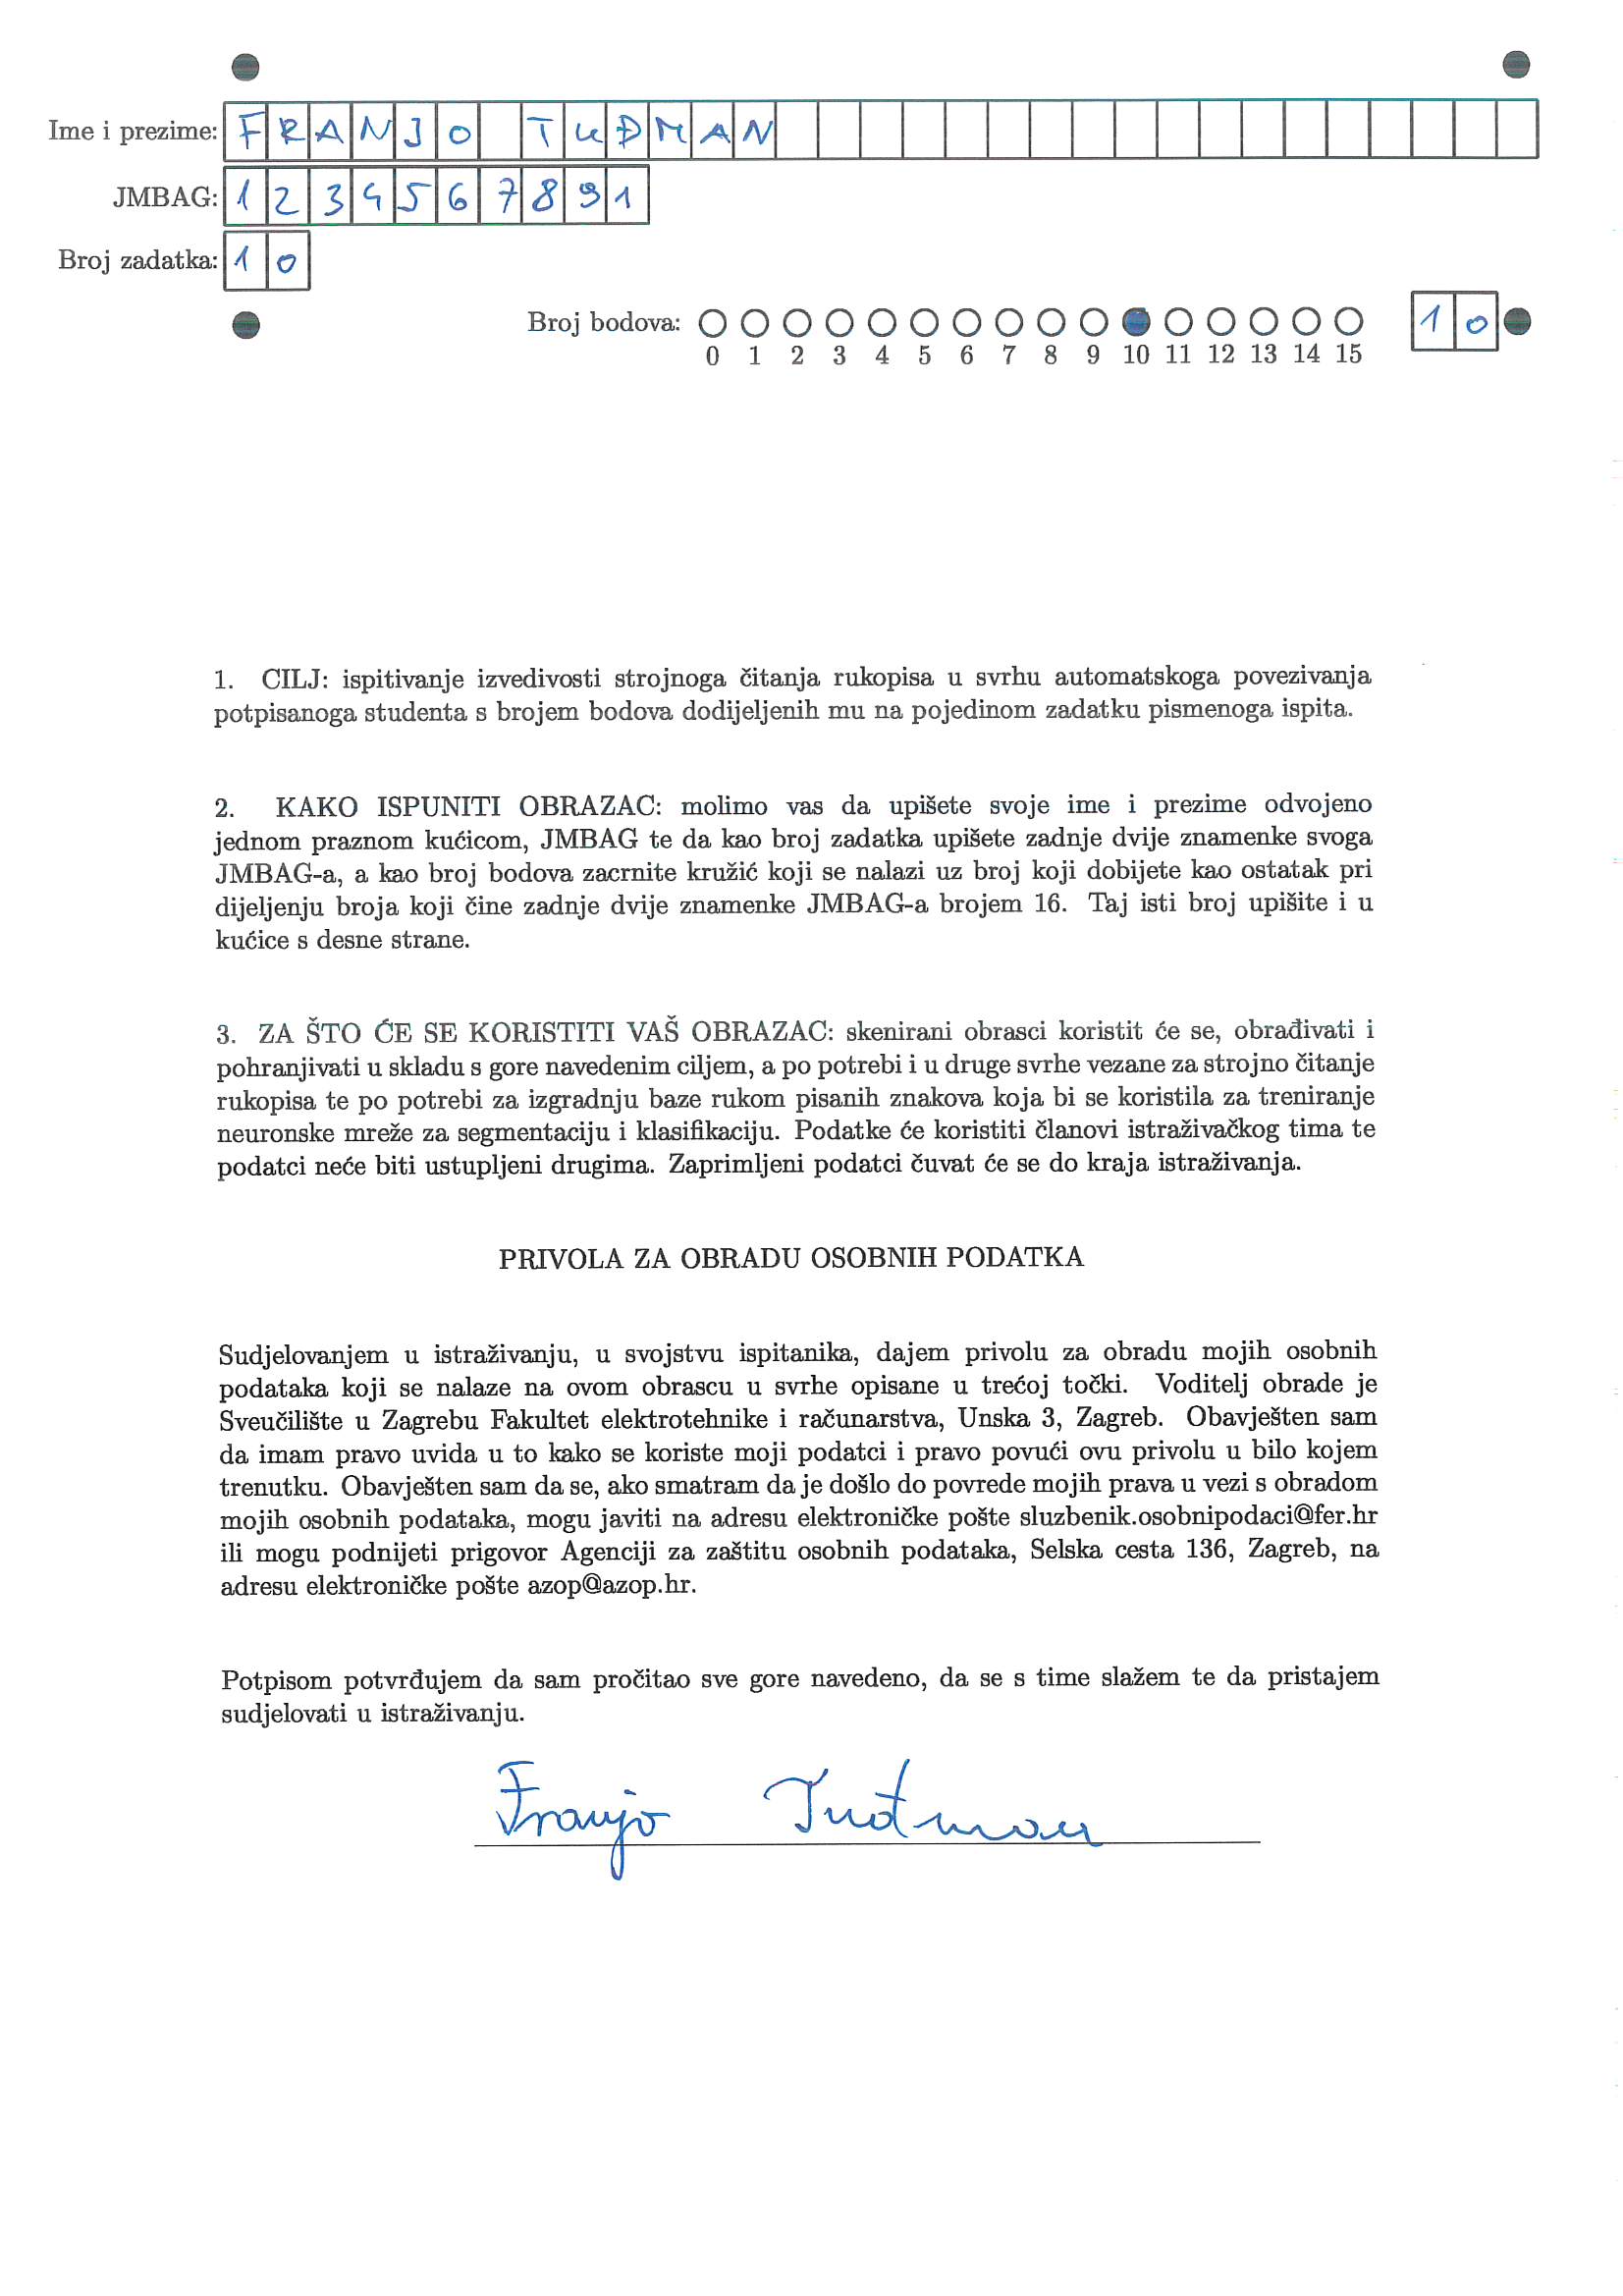 Ime i prezime: FRANJO TUĐMAN
JMBAG: 1234567891
Broj zadatka: 10
Broj bodova: 10
0 1 2 3 4 5 6 7 8 9 10 11 12 13 14 15
1. CILJ: ispitivanje izvedivosti strojnoga čitanja rukopisa u svrhu automatskoga povezivanja
potpisanoga studenta s brojem bodova dodijeljenih mu na pojedinom zadatku pismenoga ispita.
2. KAKO ISPUNITI OBRAZAC: molimo vas da upišete svoje ime i prezime odvojeno
jednom praznom kućicom, JMBAG te da kao broj zadatka upišete zadnje dvije znamenke svoga
JMBAG-a, a kao broj bodova zacrnite kružić koji se nalazi uz broj koji dobijete kao ostatak pri
dijeljenju broja koji čine zadnje dvije znamenke JMBAG-a brojem 16. Taj isti broj upišite i u
kućice s desne strane.
3. ZA ŠTO ĆE SE KORISTITI VAŠ OBRAZAC: skenirani obrasci koristit će se, obrađivati i
pohranjivati u skladu s gore navedenim ciljem, a po potrebi i u druge svrhe vezane za strojno čitanje
rukopisa te po potrebi za izgradnju baze rukom pisanih znakova koja bi se koristila za treniranje
neuronske mreže za segmentaciju i klasifikaciju. Podatke će koristiti članovi istraživačkog tima te
podatci neće biti ustupljeni drugima. Zaprimljeni podatci čuvat će se do kraja istraživanja.
PRIVOLA ZA OBRADU OSOBNIH PODATKA
Sudjelovanjem u istraživanju, u svojstvu ispitanika, dajem privolu za obradu mojih osobnih
podataka koji se nalaze na ovom obrascu u svrhe opisane u trećoj točki. Voditelj obrade je
Sveučilište u Zagrebu Fakultet elektrotehnike i računarstva, Unska 3, Zagreb. Obavješten sam
da imam pravo uvida u to kako se koriste moji podatci i pravo povući ovu privolu u bilo kojem
trenutku. Obavješten sam da se, ako smatram da je došlo do povrede mojih prava u vezi s obradom
mojih osobnih podataka, mogu javiti na adresu elektroničke pošte sluzbenik.osobnipodaci@fer.hr
ili mogu podnijeti prigovor Agenciji za zaštitu osobnih podataka, Selska cesta 136, Zagreb, na
adresu elektroničke pošte azop@azop.hr.
Potpisom potvrđujem da sam pročitao sve gore navedeno, da se s time slažem te da pristajem
sudjelovati u istraživanju.
Franjo Tuđman